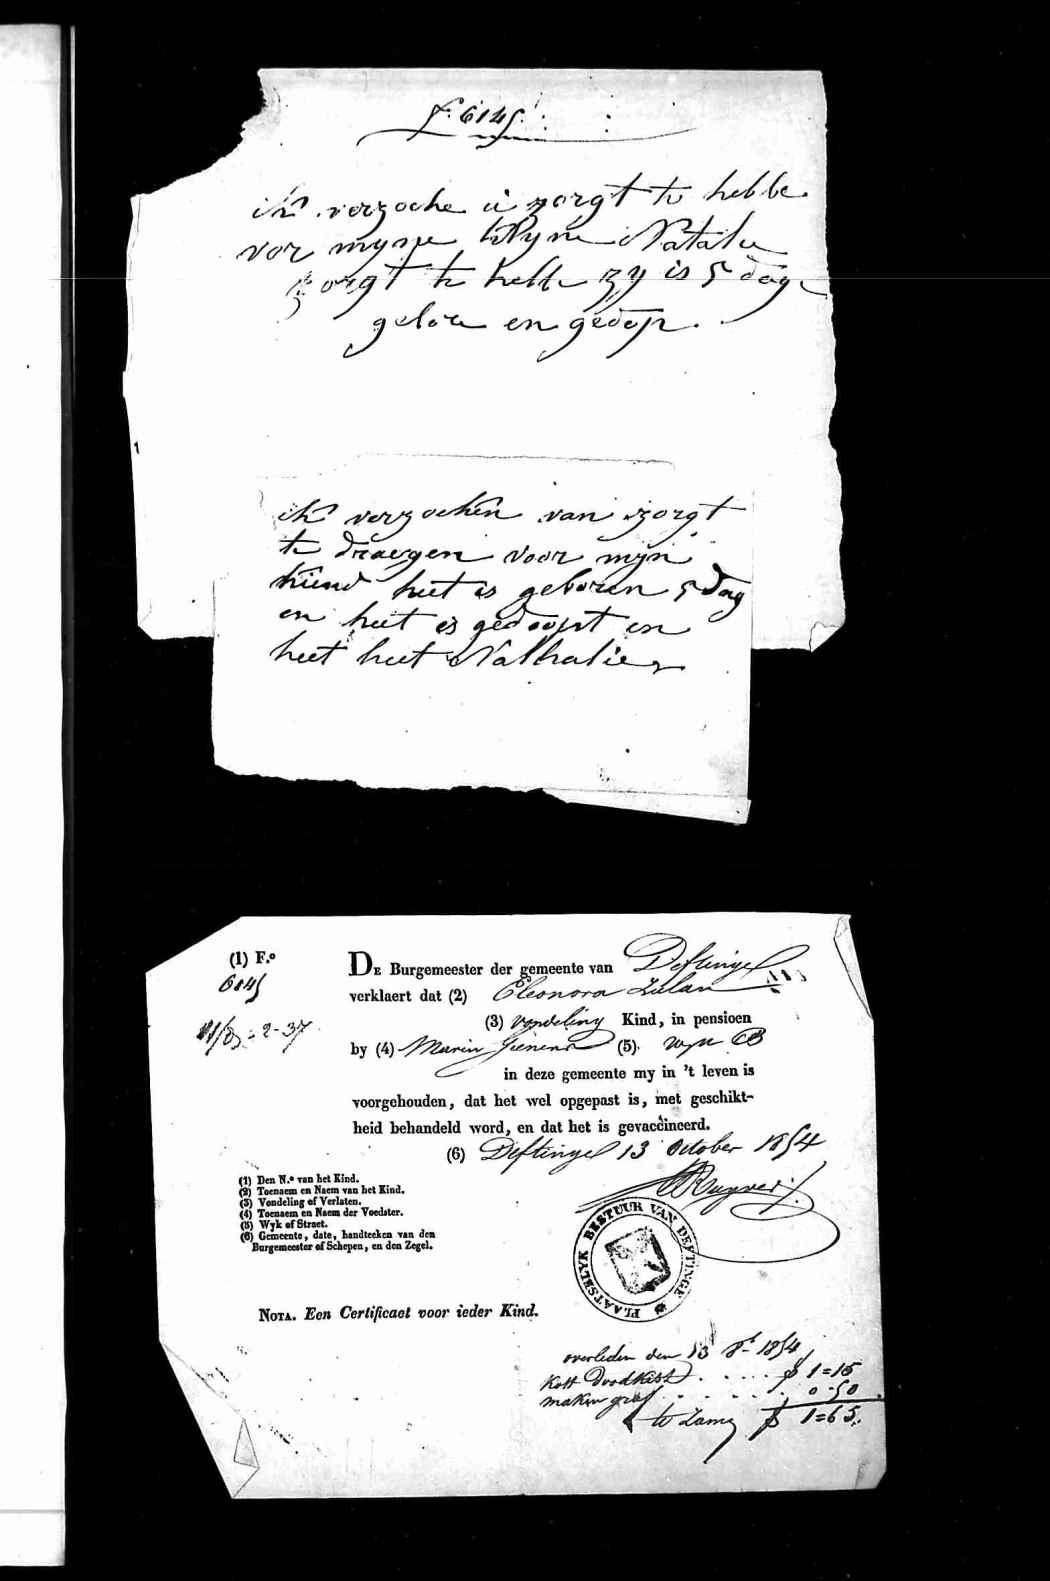 f. 6145.
ik verzoche ú zorgt te hebbe
vor myne klyne Natalie
zorgt te hebbe zy is 5 dage
gebore en gedop.
ik verzoeken van zorgt
te draegen voor mijn
kiend het is geboren 5 dag
en heet es gedoopt en
heet heet Nathalie
(1) F.º
6145
DE Burgemeester der gemeente van Deftinge
verklaert dat (2) Eleonora
(3) vondeling Kind, in pensioen
by (4) (5) wyk B
in deze gemeente my in 't leven is
voorgehouden, dat het wel opgepast is, met geschikt-
heid behandeld word, en dat het is gevaccineerd.
(6) Deftinge 13 October 1854
(1) Den N.º van het Kind.
(2) Toenaem en Naem van het Kind.
(3) Vondeling of Verlaten.
(4) Toenaem en Naem der Voedster.
(5) Wyk of Straet.
(6) Gemeente, date, handteeken van den
Burgemeester of Schepen, en den Zegel.
PLAATSELYK BESTUUR VAN DEFTINGE
NOTA. Een Certificaet voor ieder Kind.
overleden den 13 8.r 1854
Kost Doodkist . . . . . . 1=15
maken graf . . . . . . 0-50
te Zamen 1=65.